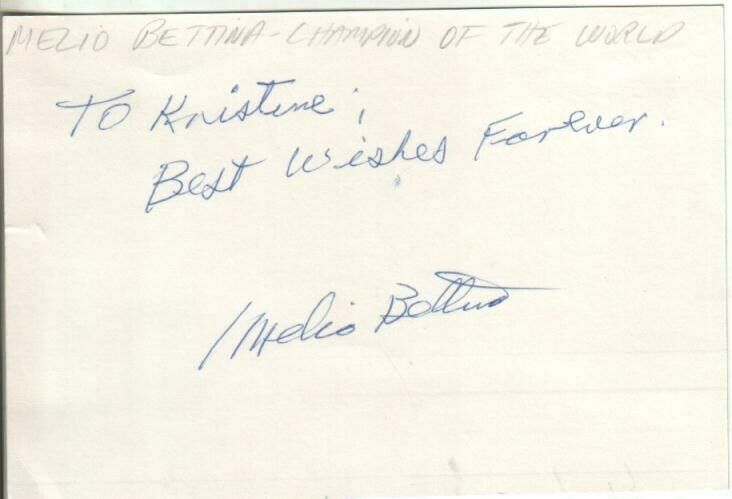 MELIO BETTINA - CHAMPION OF THE WORLD
To Kristine;
Best Wishes Forever.
Melio Bettina